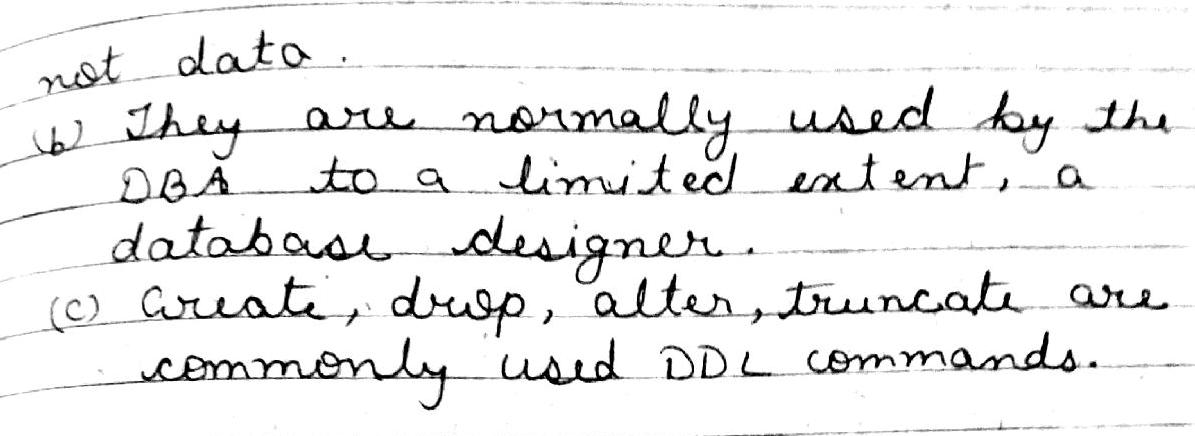 not data.
(b) They are normally used by the
DBA to a limited extent, a
database designer.
(c) Create, drop, alter, truncate are
commonly used DDL commands.